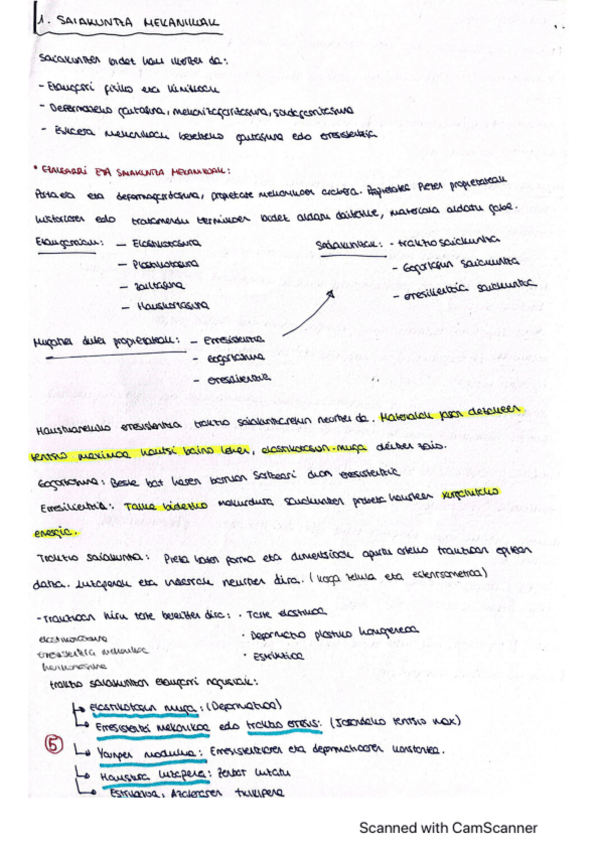 1. SAIAKUNTZA MEKANIKOAK
Saiakuntzen bidez hau lortzen da:
- Ezaugarri fisiko eta kimikoak
- Deformatzeko gaitasuna, mekanizagarritasuna, soldagarritasuna
- Eskaera mekanikoak betetzeko gaitasuna edo erresistentzia
* EZAUGARRI ETA SAIAKUNTZA MEKANIKOAK:
eta deformagarritasuna, propietate mekanikoen arabera. propietateak
edo tratamendu termikoen bidez aldatu daitezke, materiala aldatu gabe.
Ezaugarriak: - Elastikotasuna
Saiakuntzak: - trakzio saiakuntza
- Plastikotasuna
- Gogortasun saiakuntza
- Zailtasuna
- erresilientzia saiakuntza
- Hauskortasuna
Mugatzen duten propietateak: - Erresistentzia
- Gogortasuna
- erresilientzia
Hausturarekiko erresistentzia trakzio saiakuntzarekin neurtzen da. Materialak jasan dezakeen
tentsio maximoa hautsi baino lehen, elastikotasun-muga deitzen zaio.
Gogortasuna: Beste bat haren barruan sartzeari dion erresistentzia
Erresilientzia: Talka bidezko makurdura saiakuntzan probeta hausteko xurgatutako
energia.
Trakzio saiakuntza: Pieza baten forma eta dimentsioak aztertu trakzioan
datza. Luzapenak eta indarrak neurtzen dira. (karga zelula eta extentsometroa)
- Trakzioan hiru tarte bereizten dira: • Tarte elastikoa
elastikotasuna
• Deformazio plastiko homogeneoa
erresistentzia mekanikoa
• Estrikzioa
harikortasuna
trakzio saiakuntzen ezaugarri nagusiak:
Elastikotasun muga: (Deformazioa)
Erresistentzi mekanikoa edo trakzio erresis: (Jasandako tentsio max)
5
Youngen modulua: Erresistentziaren eta deformazioaren konstantea.
Haustura luzapena: Zenbat luzatu
Estrikzioa, Azaleraren txikipena
Scanned with CamScanner